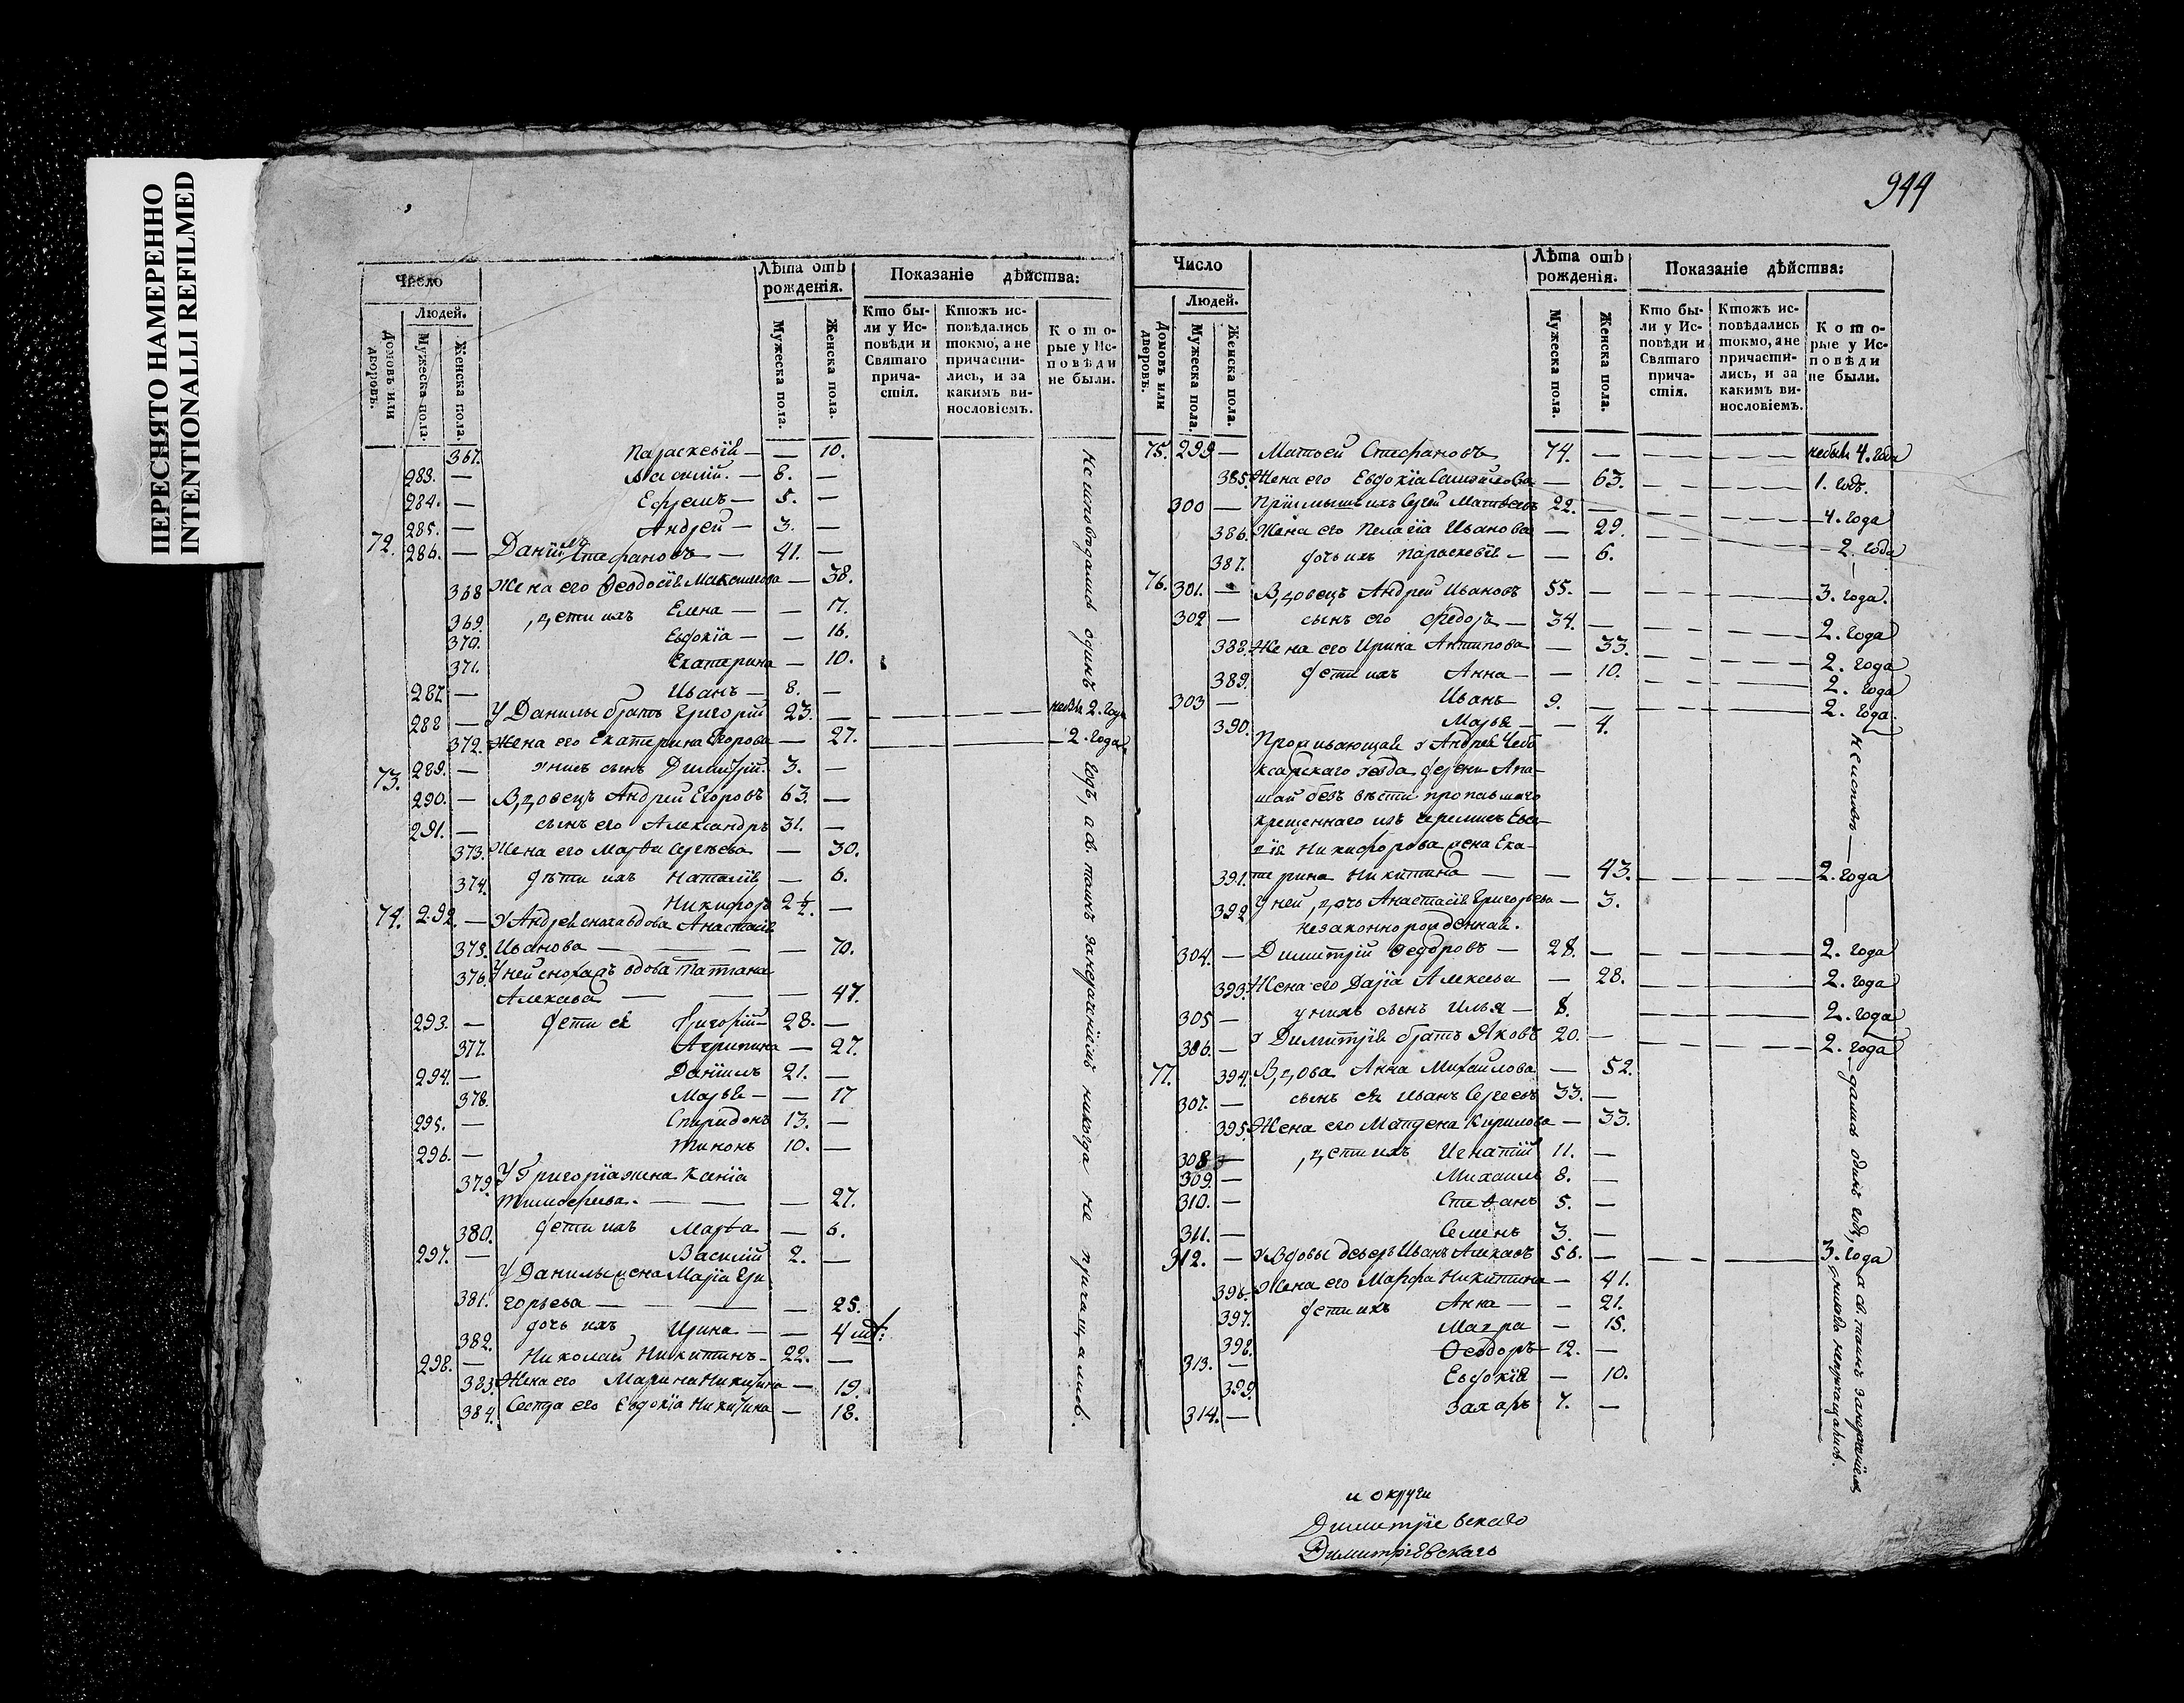 ПЕРЕСНЯТО НАМЕРЕННО
INTENTIONALLI REFILMED
944
Число
Людей.
Домовъ или дворовъ.
Мужеска пола.
Женска пола.
Лѣта отъ рожденія.
Мужеска пола.
Женска пола.
Показаніе дѣйства:
Кто были у Исповѣди и Святаго причастія.
Ктожъ исповѣдались токмо, а не причастились, и за какимъ винословіемъ.
Которые у Исповѣди не были.
367. Параскевія — — 10.
283. — Василій. — 8. —
284. — Ефремъ — 5. —
285. — Андрей — 3. —
72. 286. — Даніилъ Стефановъ — 41. —
368 Жена его Ѳеодосія Максимова — 38.
369. дети ихъ Елена — — 17.
370. Евдокіа — — 16.
371. Екатерина — 10.
287. — Иванъ — 8. —
288 — У Данилы братъ Григорій 23. — — — — небылъ 2. года
372. Жена его Екатерина Егорова — 27. — — — 2. года
289. — у нихъ сынъ Димитрій. 3. —
73. 290. — Вдовецъ Андрей Егоровъ 63. —
291. — сынъ его Александръ 31. —
373. Жена его Марѳа Сергѣева — 30.
374. дѣти ихъ Наталія — 6.
292. — Никифоръ 2 ½. —
74. У Андрея сноха вдова Анастасія
375. Иванова — — — — 70.
376. У ней снохаже вдова Татіана
Алексѣева — — — 47.
293. — дети ея Григорій — 28. —
377. Агрипина — 27.
294. — Даніилъ 21. —
378. Марья — — 17
295. — Спиридонъ 13. —
296. — Тихонъ 10. —
379. У Григоріа жена Ксеніа
Тимоѳеева. — — — 27.
380. дети ихъ Марѳа — 6.
297. — Василій 2. —
У Данилы жена Маріа Гри-
381. горьева — — — 25.
382. дочь ихъ Ирина — — 4 мѣ:
298. — Николай Никитинъ — 22. —
383. Жена его Марина Никитина — 19.
384. Сестра его Евдокіа Никитина — 18.
не исповѣдались одинъ годъ, а св. таинъ
никогда не причащались.
Число
Людей.
Домовъ или дворовъ.
Мужеска пола.
Женска пола.
Лѣта отъ рожденія.
Мужеска пола.
Женска пола.
Показаніе дѣйства:
Кто были у Исповѣди и Святаго причастія.
Ктожъ исповѣдались токмо, а не причастились, и за какимъ винословіемъ.
Которые у Исповѣди не были.
75. 299 — Матѳей Стефановъ 74. — — — небылъ 4. года
385. Жена его Евдокіа — 63. — — 1. годъ.
300 — Пріимышъ ихъ Сергей Матѳеевъ 22. — — — 4. года
386. Жена его Пелагіа Иванова — 29. — — 2. года
387. дочь ихъ Параскевія — — 6.
76. 301. — Вдовецъ Андрей Ивановъ 55. — — — 3. года.
302 — сынъ его Ѳедоръ — 34. — — — 2. года
388. Жена его Ирина Антипова — 33. — — 2. года
389. дети ихъ Анна — — 10. — — 2. года
303 — Иванъ 9. — — — 2. года.
390. Марья — — 4.
Проживающая у Андрея Чебо
ксарскаго уезда дерени Апа-
шай безъ вѣсти пропавшаго
крещеннаго изъ черемисъ
Никифорова жена Ека-
391. терина Никитина — — 43. — — 2. года
392 У ней дочь Анастасія Григорьева — 3.
незаконнорожденная.
304. — Димитрій Ѳедоровъ — 28. — — — 2. года
393. Жена его Дарія Алексѣева — 28. — — 2. года
305 — у нихъ сынъ Илья — 8. — — 2. года
306. — у Димитрія братъ Яковъ 20. — — — 2. года
77. 394. Вдова Анна Михайлова — 52.
307. — сынъ ея Иванъ Сергеевъ 33. —
395. Жена его Кирилова — 33.
308 — дети ихъ Игнатій 11. —
309. — Михаилъ 8. —
310. — Стеѳанъ 5. —
311. — Семенъ 3. —
312. — У Вдовы деверь Иванъ Алексеевъ 56. — — — 3. года
396. Жена его Марѳа Никитина — 41.
397. дети ихъ Анна — — 21.
398. Мавра — 15.
313. — Ѳеодоръ — 12. —
399. Евдокія — 10.
314. — Захаръ 7. —
— неисповѣ —
— дались одинъ годъ, а св. таинъ
никогда непричащались.
и округи
Димитріевскаго
Димитріевскаго